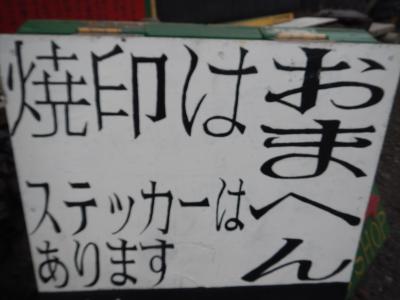 焼印は
おまへん
ステッカーは
あります
SHOP